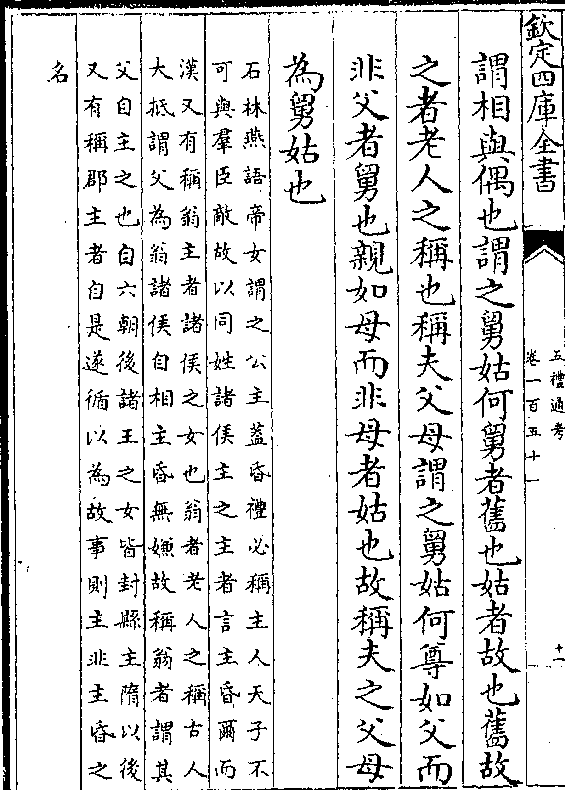 欽定四庫全書
五禮通考
卷一百五十一
十一
謂相與偶也謂之舅姑何舅者舊也姑者故也舊故
之者老人之稱也稱夫父母謂之舅姑何尊如父而
非父者舅也親如母而非母者姑也故稱夫之父母
為舅姑也
石林燕語帝女謂之公主蓋昏禮必稱主人天子不
可與羣臣敵故以同姓諸侯主之主者言主昏爾而
漢又有稱翁主者諸侯之女也翁者老人之稱古人
大抵謂父為翁諸侯自相主昏無嫌故稱翁者謂其
父自主之也自六朝後諸王之女皆封縣主隋以後
又有稱郡主者自是遂循以為故事則主非主昏之
名